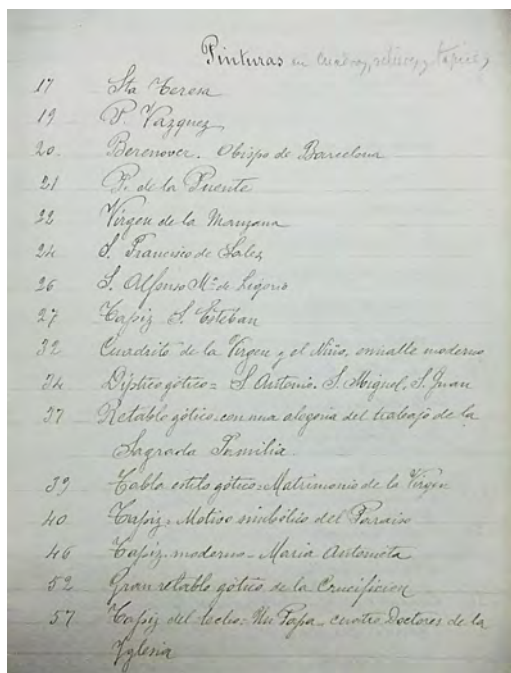 Pinturas en Cuadros, relieves y tapices
17 Sta Teresa
19 P. Vazquez
20. Berenover. Obispo de Barcelona
21 P. de la Puente
22 Virgen de la Manzana
24 S. Francisco de Sales
26 S. Alfonso Mª de Ligorio
27 Tapiz S. Esteban
32 Cuadrito de la Virgen y el Niño, esmalte moderno
34 Díptico gótico = S. Antonio. S. Miguel. S. Juan
37 Retablo gótico = con una alegoria del trabajo de la
Sagrada Familia.
39 Tabla estilo gótico = Matrimonio de la Virgen
40 Tapiz = Motivo simbólico del Paraiso
46 Tapiz moderno = Maria Antonieta
52 Gran retablo gótico de la Crucificcion
57 Tapiz del techo = Un Papa = cuatro Doctores de la
Yglesia